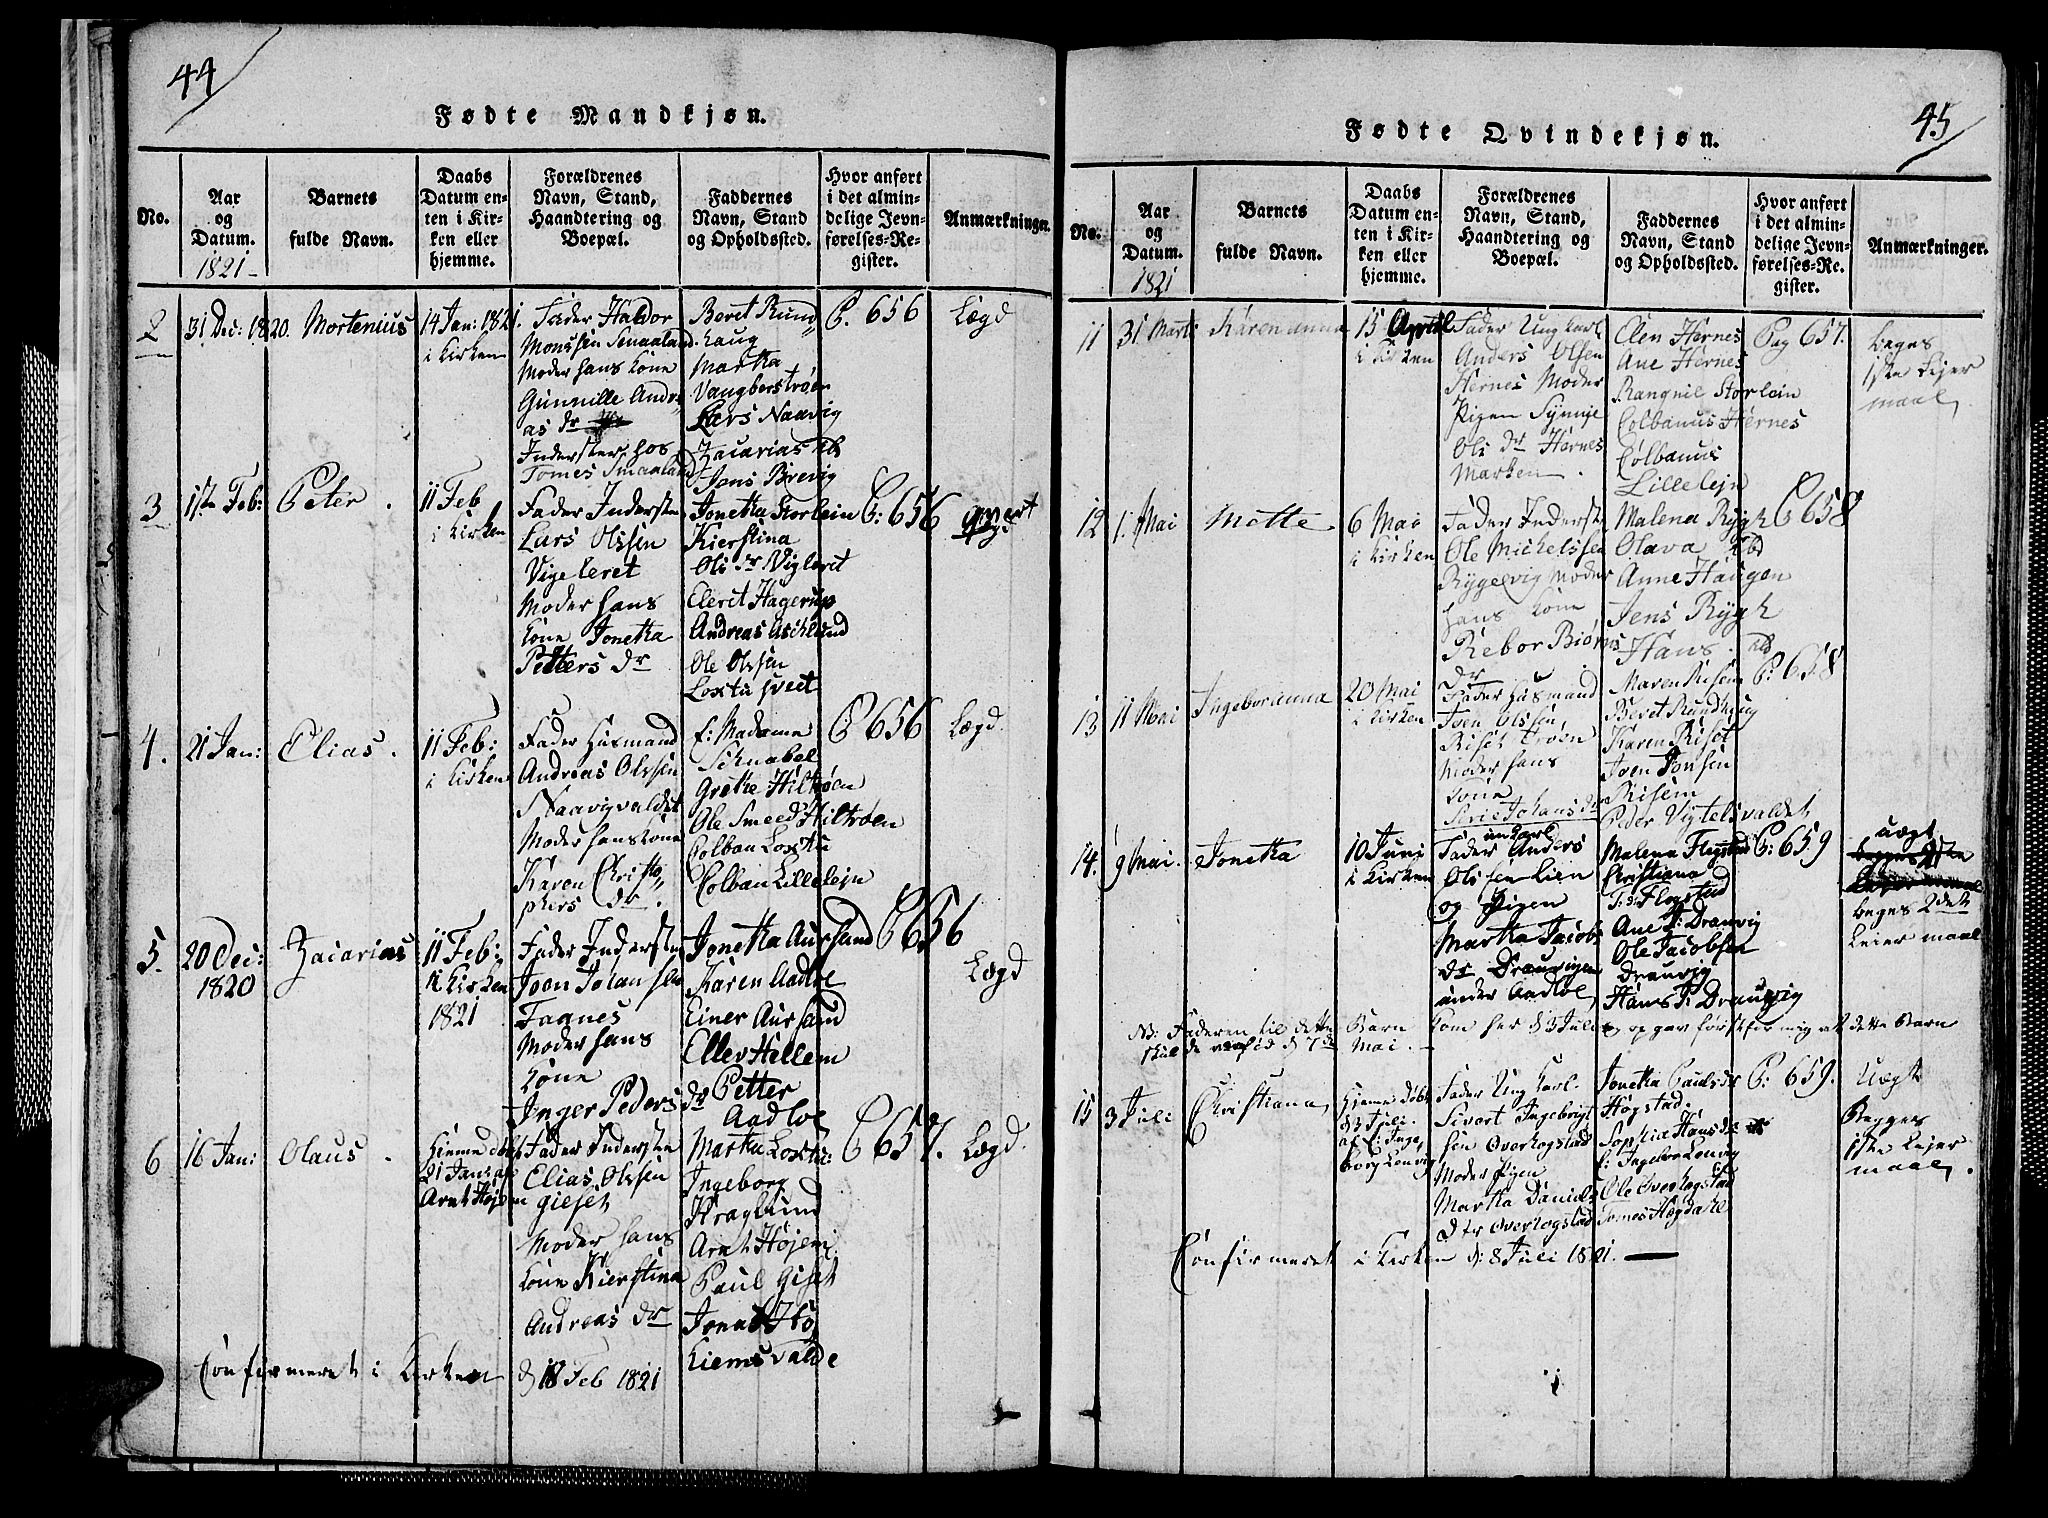 44
Fødte Mandkjøn.
No.
Aar
og
Datum.
1821
Barnets
fulde Navn.
Daabs
Datum en-
ten i Kir-
ken eller
hjemme.
Forældrenes
Navn, Stand,
Haandtering og
Boepæl.
Faddernes
Navn, Stand
og Opholdssted.
Hvor anført
i det almin-
delige Jevn-
førelses-Re-
gister.
Anmærkninger.
2
31 Dec: 1820.
Mortenius
14 Jan: 1821.
i Kirken
Fader Haldor
Monssen Smaaland
Moder hans Kone
Gunnille Andr
as dr
Inderster hos
Tomes Smaaland
Beret Rund
haug
Martha
Vangberstrøen
Lars Naavig
Zacarias ibd
Jons Brevig
P. 656
Lægd
3
1ste Feb:
Peter
11 Feb
i Kirken
Fader Inderste
Lars Olssen
Vigeleret
Moder hans
Kone Jonetha
Petters dr
Jonetha Storlein
Kierstina
Ols dr Vigleret
Elerit Hagerup
Andreas Aschlund
Ole Olssen
Loxtu sveet
P: 656
4.
21 Jan:
Elias.
11 Feb:
i Kirken
Fader Husmand
Andreas Olssen
Naavigvaldet
Moder hans Kone
Karen Christo
phers dr.
f: Madame
Schnabel
Grethe Hiltrøen
Ole Smeed Hiltrøen
Colban Loxtu
Colban Lillelejn
P 656
Lægd
5.
20 Dec:
1820
Zacarias
11 Feb:
i Kirken
1821
Fader Inderste
Joen Johansen
Fagnes
Moder hans
Kone
Inger Peders dr
Jonetha Aursand
Karen Aadloe
Einer Aursand
Ellev Hellem
Petter
Aadloe
P 656
Lægd
6
16 Jan:
Olaus
Hiemme døbt
21 Jan: af
Arnt Højem
Fader Inderste
Elias Olssen
Gieset
Moder hans
Kone Kierstina
Andreas dr
Martha Loxtu:
Ingeborg
Kraglund
Arnt Højem
Paul Giset
Jonas Hø
Kiemsvalde
P 657.
Lægd.
Confirmeret i Kirken d 18 Feb 1821
45
Fødte Qvindekjøn.
No.
Aar
og
Datum.
1821
Barnets
fulde Navn.
Daabs
Datum en-
ten i Kir-
ken eller
hjemme.
Forældrenes
Navn, Stand,
Haandtering og
Boepæl.
Faddernes
Navn, Stand
og Opholdssted.
Hvor anført
i det almin-
delige Jevn-
førelses-Re-
gister.
Anmærkninger.
11
31 Marti
Karen anna
15 April
i Kirken
Fader Ung karl
Anders Olsen
Hernes Moder
Pigen Synnje
Ols dr Hernes
Marken.
Elen Hernes
Ane Hernes
Ranqnil Storlein
Colbanus Hernes
Colbanus
Lillelejn
Pag 657.
beges
1ste Lejer
maal
12
1. Mai
Mette
6 Mai
i Kirken
Fader Inderste
Ole Michelssen
Rygelvig Moder
hans Kone
Rebor Biørns
dr
Malena Rygh
Olava ibd
Anne Haugen
Jens Rygh
Hans ibd
P 658
13
11 Mai
Ingeborianna
20 Mai
i Kirken
Fader Husmand
Joen Olssen
Risetrøen
Moder hans
Kone
Serie Johans dr
Maren Risem
Beret Rundhaug
Karen Riset
Joen Jonsen
Risem
Peder Vigtelsvaldet
P: 658
14.
9 Mai.
Jonetha
10 Juni
i Kirken
ung karl
Fader Anders
Olssen Lien
og Pigen
Martha Jacobs
dr Drauvigen
under Aadloe
Malena Flegstad
Christiana
Flegstad
Ane J: Drauvig
Ole Jacobsen
Drauvig
Hans J: Drauvig
P: 659
uægt
beges 2det
Leier maal
NB: Faderen til dette Barn kom her d 3 Juli og op gav først for mig at dette Barn
skulde være fød d 7de Mai.
15
3 Juli
Christiana
Hjemme døbt
d 3 Juli.
af E: Inge
borg Lenvig
Fader Ung karl.
Sivert Ingebrigt
sen Overhogstad
Moder Pigen
Martha Daniels
dtr Overhogstad
Jonetha Pauls dr
Høgstad.
Sophia Hans dr
E: Ingebor Lenvig
Ole Overhogstad
Tomes Hægdahl
P: 659.
Uægt
Begges
1ste Lejer
maal.
Confirmeret i Kirken d: 8 Juli 1821.